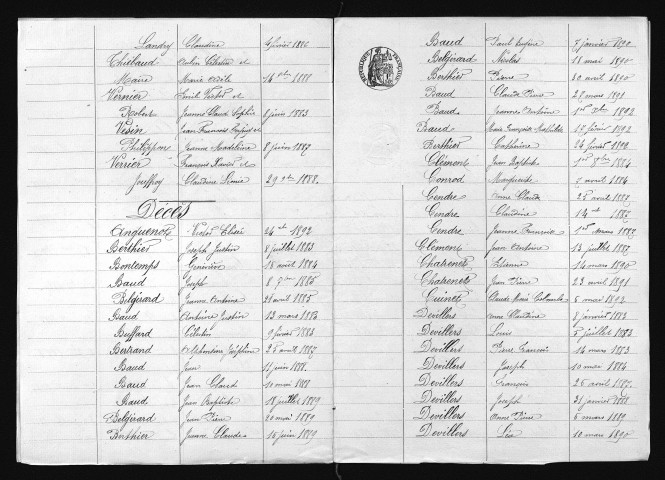 Landry Claudine février 1886
Thiébaud
Maire Marie 14 1888
Vernier Emile et
Robert Jeanne Claude Sophie juin 1883
Vesin Jean François et
Philippon Jeanne Madeleine 8 juin 1887
Verrier François Xavier et
Jouffroy Claudine 29 1888
Décès
Cinquenet Victor 24 1892
Berthier Joseph Justin 8 juillet 1883
Bontemps Geneviève 18 avril 1884
Baud Joseph 8 7bre 1885
Belgirard Jeanne Antoine 21 avril 1885
Baud Antoine Justin 13 mars 1886
Buffard 1883
Bertrand Joséphine 28 avril 1887
Baud Jean 11 juin 1888
Baud Jean Claude 10 mai 1888
Baud Jean Baptiste 18 juillet 1889
Belgirard Jean Pierre 20 mai 1889
Berthier Jeanne Claude 15 juin 1889
Baud Paul Eugène 7 janvier 1890
Belgirard Nicolas 18 mai 1890
Berthier Pierre 10 avril 1890
Baud Claude Pierre 28 mars 1891
Baud Jeanne Antoine 1er 1892
Baud Marie Françoise Mathilde 19 février 1892
Berthier Catherine 24 février 1892
Clément Jean Baptiste 1er 1884
Conrod Marguerite 2 avril 1884
Cendre Anne Claude 25 avril 1887
Cendre Claudine 14 1887
Cendre Jeanne Françoise 1er mars 1887
Clément Jean Antoine 13 juillet 1887
Chatrenet 14 mars 1890
Chatrenet Jean Pierre 23 avril 1891
Cuinet Claude Marie 5 mai 1892
Devillers Anne Claudine 8 janvier 1883
Devillers Louis 5 juillet 1883
Devillers Pierre François 14 mars 1883
Devillers Joseph 10 mai 1884
Devillers François 25 avril 1887
Devillers Joseph 21 janvier 1888
Devillers Anne Pierre 5 mars 1889
Devillers Léa 10 mars 1890